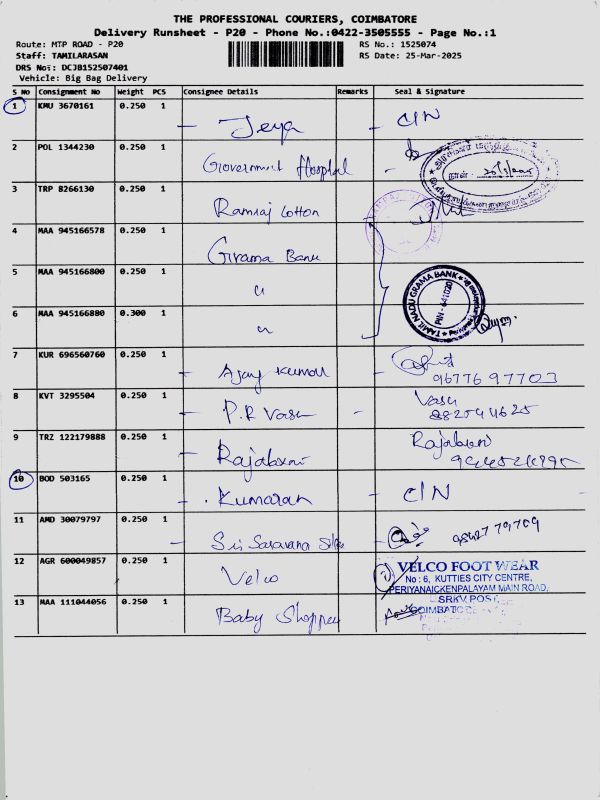 THE PROFESSIONAL COURIERS, COIMBATORE
Delivery Runsheet - P20 - Phone No.:0422-3505555 - Page No.:1
Route: MTP ROAD - P20
RS No.: 1525074
Staff: TAMILARASAN
RS Date: 25-Mar-2025
DRS No: DCJB152507401
Vehicle: Big Bag Delivery
S No Consignment No Weight PCS Consignee Details Remarks Seal & Signature
1 KMU 3670161 0.250 1 Jeya C/N
2 POL 1344230 0.250 1 Government Hospital
3 TRP 8266130 0.250 1 Ramraj Cotton
4 MAA 945166578 0.250 1 Grama Bank
5 MAA 945166800 0.250 1 "
6 MAA 945166880 0.300 1 "
TAMIL NADU GRAMA BANK
PIN - 641020
7 KUR 696560760 0.250 1 Ajay Kumar
96776 97703
8 KVT 3295504 0.250 1 P.R Vasu Vasu
9 TRZ 122179888 0.250 1 Rajalaxmi
10 BOD 503165 0.250 1 Kumaran C/N
11 AMD 30079797 0.250 1 Sri Saravana 98427 79709
12 AGR 600049857 0.250 1 Velco
VELCO FOOT WEAR
No : 6, KUTTIES CITY CENTRE,
PERIYANAICKENPALAYAM MAIN ROAD,
SRKV POST,
COIMBATORE
13 MAA 111044056 0.250 1 Baby Shoppee